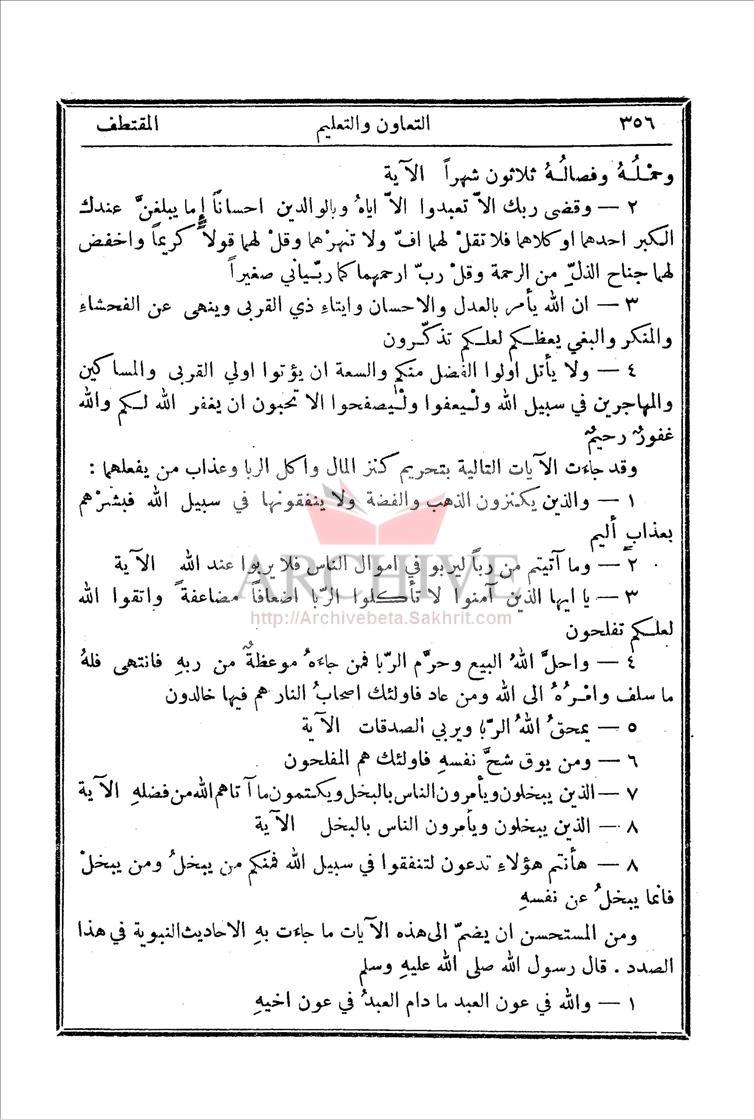 ٣٥٦ التعاون والتعليم المقتطف
وحمْلُهُ وفصالُهُ ثلاثون شهراً الآية
٢ — وقضى ربك الاّ تعبدوا الاّ اياهُ وبالوالدين احساناً إما يبلغنَّ عندك
الكبر احدهما او كلاهما فلا تقلْ لهما افّ ولا تنهرْهما وقلْ لهما قولاً كريماً واخفض
لهما جناح الذلّ من الرحمة وقلْ ربّ ارحمهما كما ربّياني صغيراً
٣ — ان الله يأمر بالعدل والاحسان وايتاءِ ذي القربى وينهى عن الفحشاءِ
والمنكر والبغي يعظكم لعلكم تذكّرون
٤ — ولا يأتل اولوا الفضل منكم والسعة ان يؤتوا اولي القربى والمساكين
والمهاجرين في سبيل الله ولْيعفوا ولْيصفحوا الا تحبون ان يغفر الله لكم والله
غفورٌ رحيمٌ
وقد جاءت الآيات التالية بتحريم كنز المال واكل الربا وعذاب من يفعلهما :
١ — والذين يكنزون الذهب والفضة ولا ينفقونها في سبيل الله فبشرْهم
بعذابٍ أليم
٢ — وما آتيتم من رباً ليربو في اموال الناس فلا يربوا عند الله الآية
ARCHIVE
٣ — يا ايها الذين آمنوا لا تأكلوا الرّبا اضعافاً مضاعفةً واتقوا الله
http://Archivebeta.Sakhrit.com
لعلكم تفلحون
٤ — واحلَّ اللهُ البيع وحرَّم الرّبا فمن جاءهُ موعظةٌ من ربهِ فانتهى فلهُ
ما سلف وامْرُهُ الى الله ومن عاد فاولئك اصحابُ النار هم فيها خالدون
٥ — يمحقُ اللهُ الرّبا ويربي الصدقات الآية
٦ — ومن يوق شحَّ نفسهِ فاولئك هم المفلحون
٧ — الذين يبخلون ويأمرون الناس بالبخل ويكتمون ما آتاهم الله من فضلهِ الآية
٨ — الذين يبخلون ويأمرون الناس بالبخل الآية
٨ — هأنتم هؤلاءِ تدعون لتنفقوا في سبيل الله فمنكم من يبخلُ ومن يبخلْ
فانما يبخلُ عن نفسهِ
ومن المستحسن ان يضمّ الى هذه الآيات ما جاءت بهِ الاحاديث النبوية في هذا
الصدد . قال رسول الله صلى الله عليهِ وسلم
١ — والله في عون العبد ما دام العبدُ في عون اخيهِ